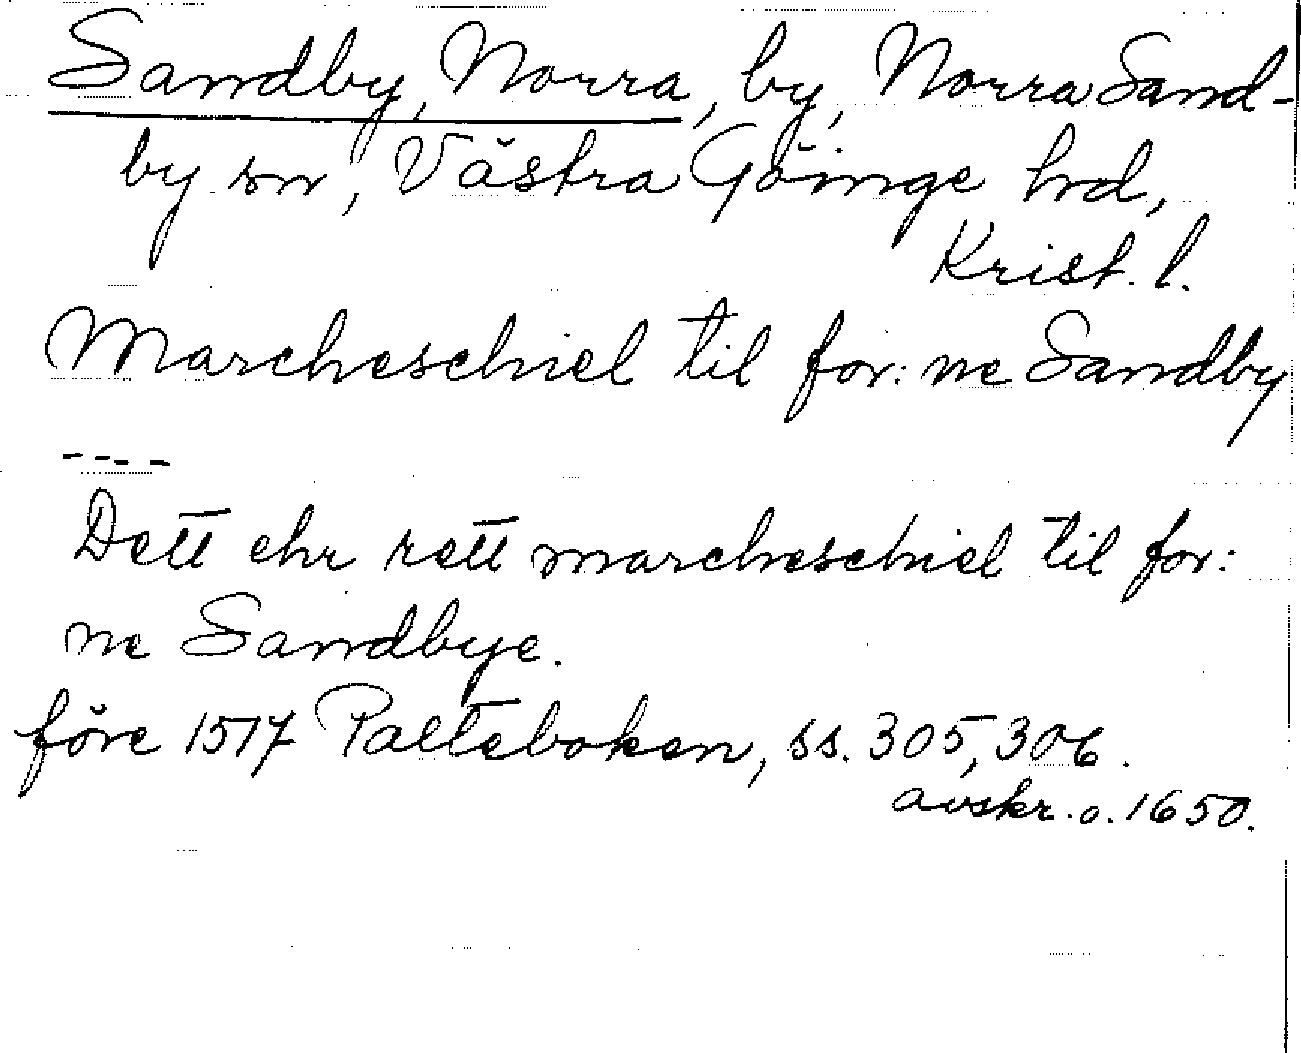 Sandby, Norra, by, Norra Sand-
by sn, Västra Göinge hd,
Krist. l.
Marcheschiel til for: ne Sandby
----
Dett ehr rett marcheschiel til for:
ne Sandbye.
före 1517 Palteboken, ss. 305, 306.
avskr. o. 1650.